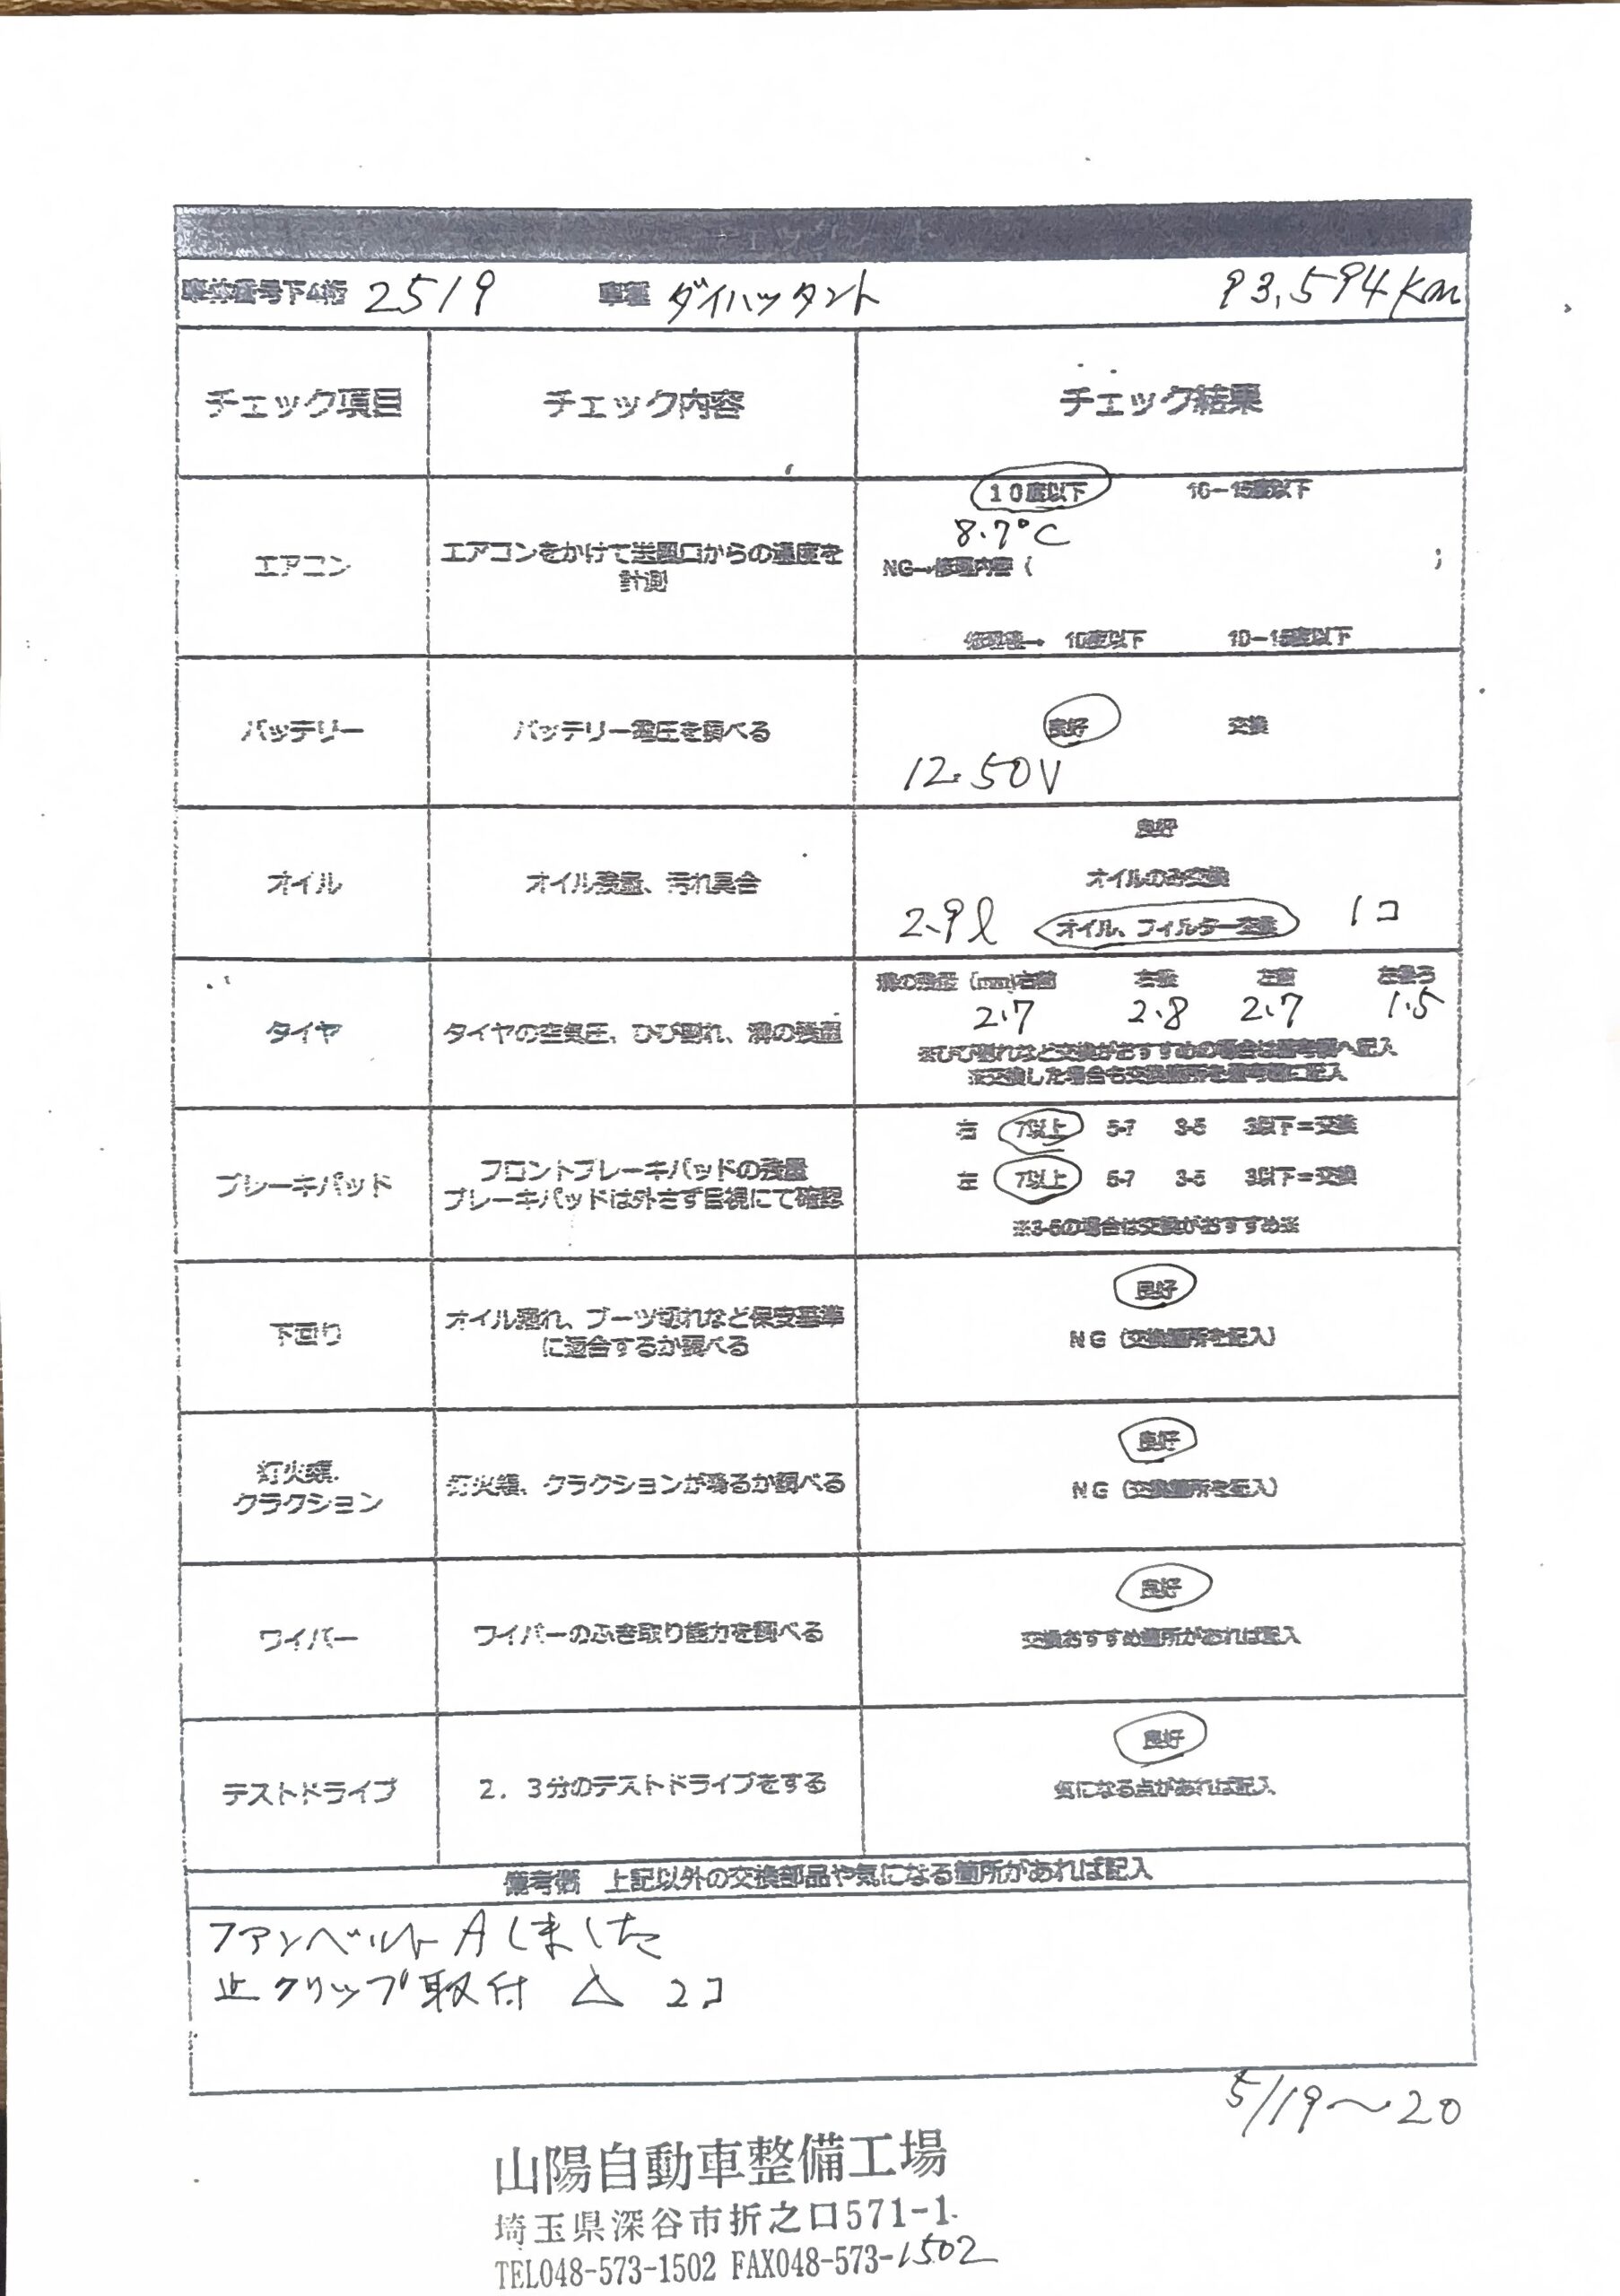 チェックシート
車体番号下4桁 2519 車種 ダイハツタント 93,594km
チェック項目 チェック内容 チェック結果
10度以下 10-15度以下
8.7°C
エアコン エアコンをかけて送風口からの温度を計測 NG→修理内容(
修理後→ 10度以下 10-15度以下
バッテリー バッテリー電圧を調べる 良好 交換
12.50V
良好
オイル オイル残量、汚れ具合 オイルのみ交換
2.9ℓ オイル、フィルター交換 1コ
溝の残量(mm)右前 右後 左前 左後ろ
2.7 2.8 2.7 1.5
タイヤ タイヤの空気圧、ひび割れ、溝の残量
※ひび割れなど交換がおすすめの場合は備考欄へ記入
※交換した場合も交換箇所を備考欄に記入
右 7以上 5-7 3-5 3以下=交換
ブレーキパッド フロントブレーキパッドの残量
ブレーキパッドは外さず目視にて確認
左 7以上 5-7 3-5 3以下=交換
※3-5の場合は交換がおすすめ※
良好
下回り オイル漏れ、ブーツ切れなど保安基準
に適合するか調べる
NG(交換箇所を記入)
良好
灯火類、
クラクション
灯火類、クラクションが鳴るか調べる
NG(交換箇所を記入)
良好
ワイパー ワイパーのふき取り能力を調べる
交換おすすめ箇所があれば記入
良好
テストドライブ 2.3分のテストドライブをする
気になる点があれば記入
備考欄 上記以外の交換部品や気になる箇所があれば記入
ファンベルトAしました
止クリップ取付 △ 2コ
5/19〜20
山陽自動車整備工場
埼玉県深谷市折之口571-1
TEL048-573-1502 FAX048-573-1502